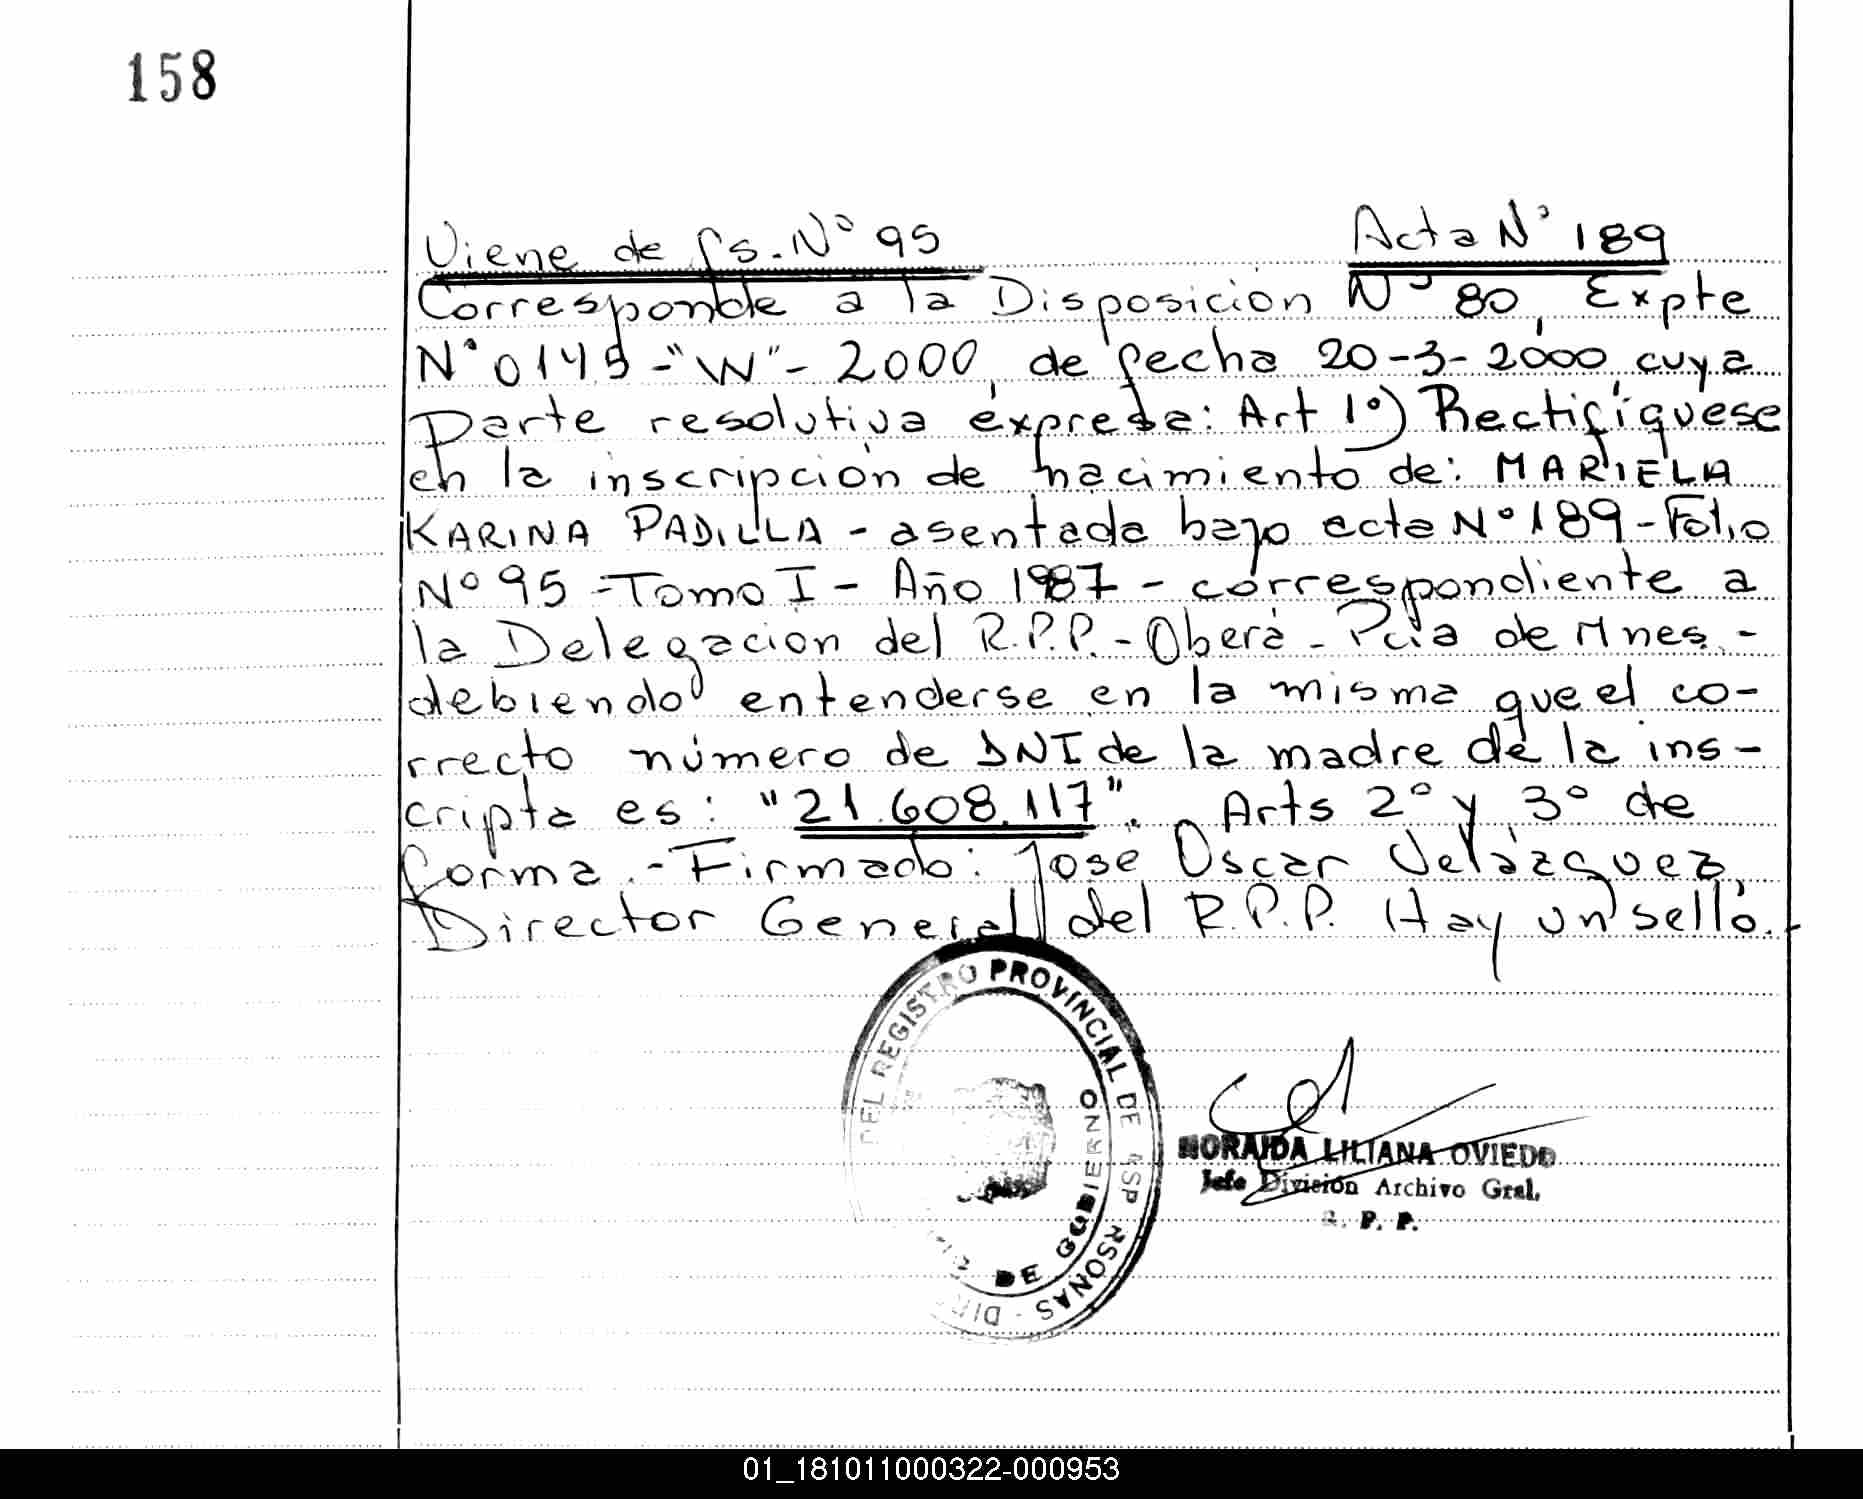 158
Viene de fs. Nº 95
Acta Nº 189
Corresponde a la Disposición Nº 80, Expte
Nº 0145-"W"- 2000, de fecha 20-3-2000, cuya
Parte resolutiva expresa: Art 1º) Rectifíquese
en la inscripción de nacimiento de: MARIELA
KARINA PADILLA - asentada bajo acta Nº 189 - Folio
Nº 95 - Tomo I - Año 1987 - correspondiente a
la Delegación del R.P.P. - Oberá - Pcia de Mnes. -
debiendo entenderse en la misma que el co-
rrecto número de DNI de la madre de la ins-
cripta es: "21.608.117". Arts 2º y 3º de
forma. - Firmado: José Oscar Velázquez,
Director General del R.P.P. Hay un sello. -
DEL REGISTRO PROVINCIAL DE RSONAS - DIR
DE GOBIERNO
NORAIDA LILIANA OVIEDO
Jefe División Archivo Gral.
R. P. P.
01_181011000322-000953